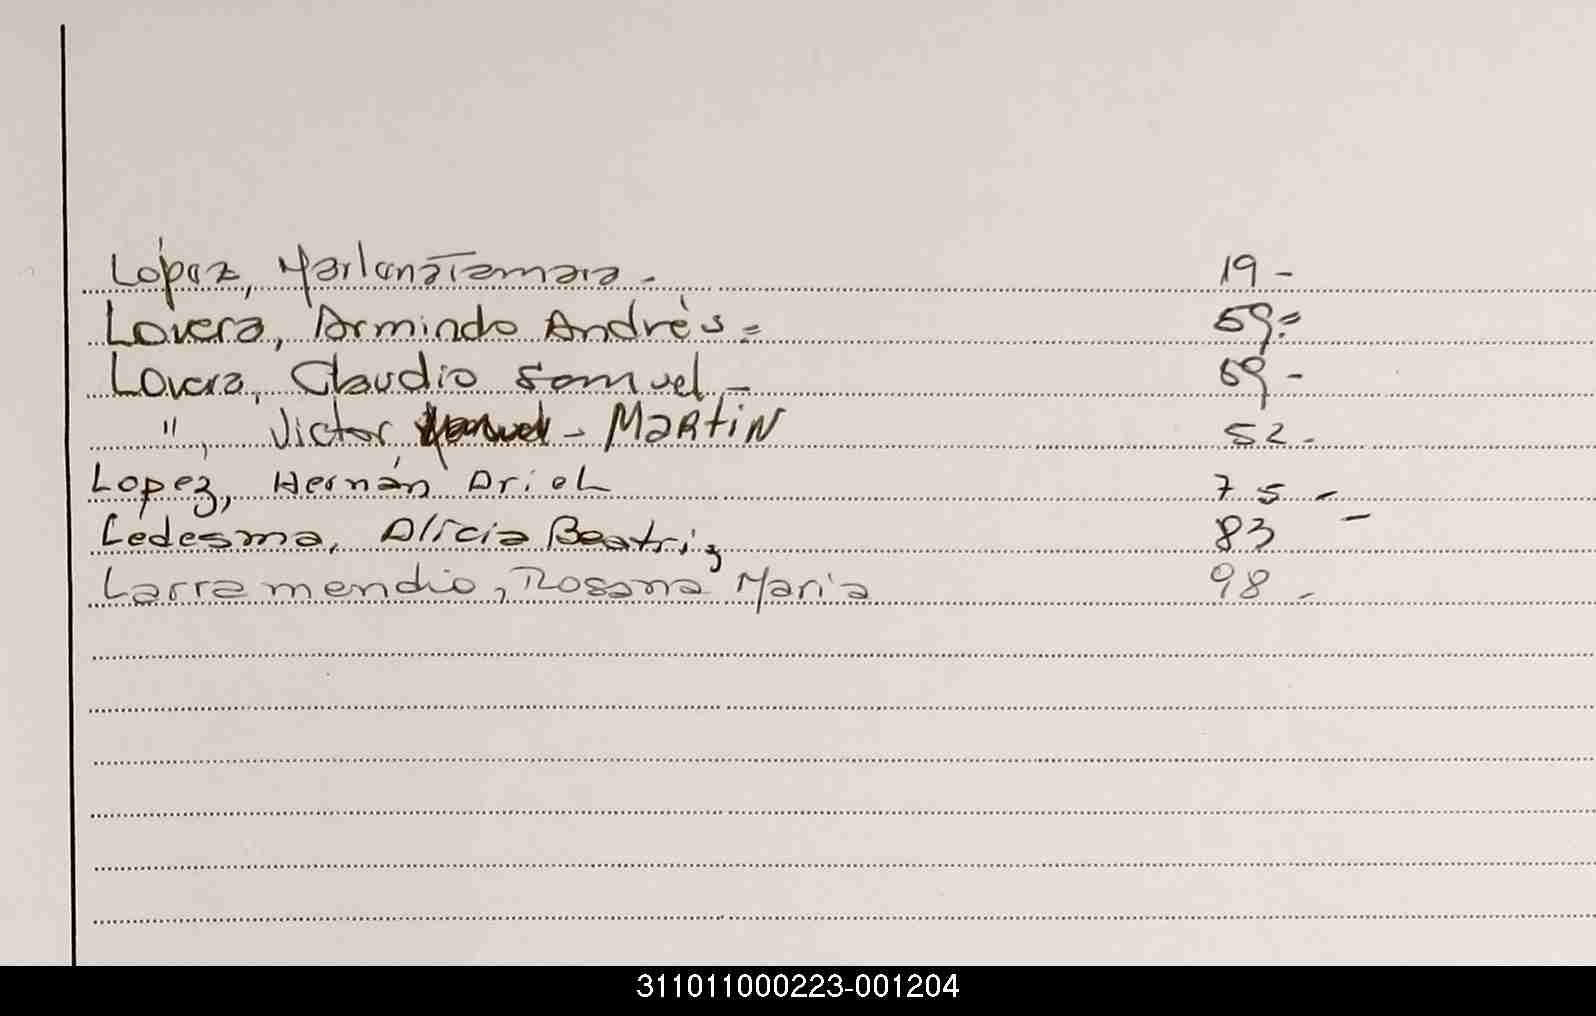 López, Marlena Tamara - 19 -
Lovera, Armindo Andrés = 59 =
Lovera, Claudio Samuel - 59 -
", Victor, - MARtiN 52 -
Lopez, Hernán Ariel 75 -
Ledesma, Alicia Beatriz 83 -
Larramendio, Rosana Maria 98 -
311011000223-001204